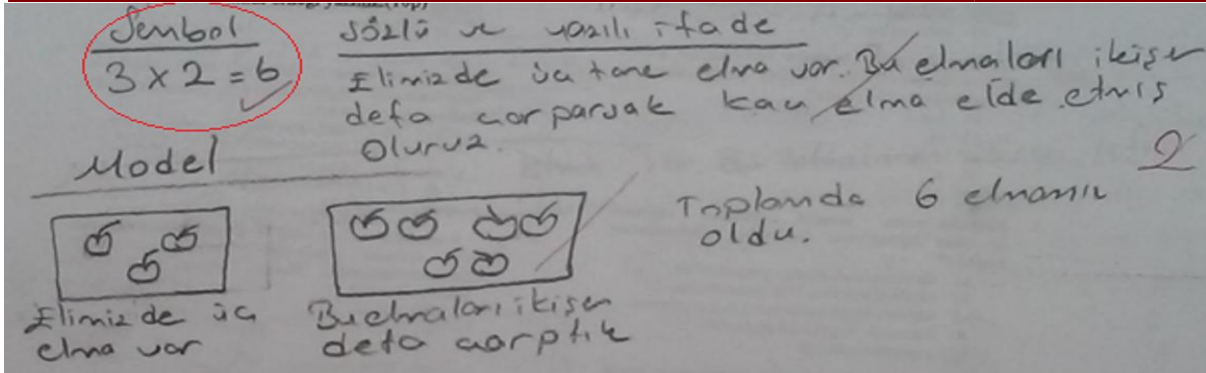 Sembol
3 x 2 = 6
Sözlü ve yazılı ifade
Elimizde üç tane elma var. Bu elmaları ikişer
defa çarparsak kaç elma elde etmiş
oluruz.
2
Model
Elimizde üç
elma var
Bu elmaları ikişer
defa çarptık
Toplamda 6 elmamız
oldu.